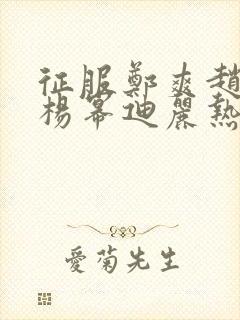 征服鄭爽趙
楊幂迪麗熱
愛菊先生